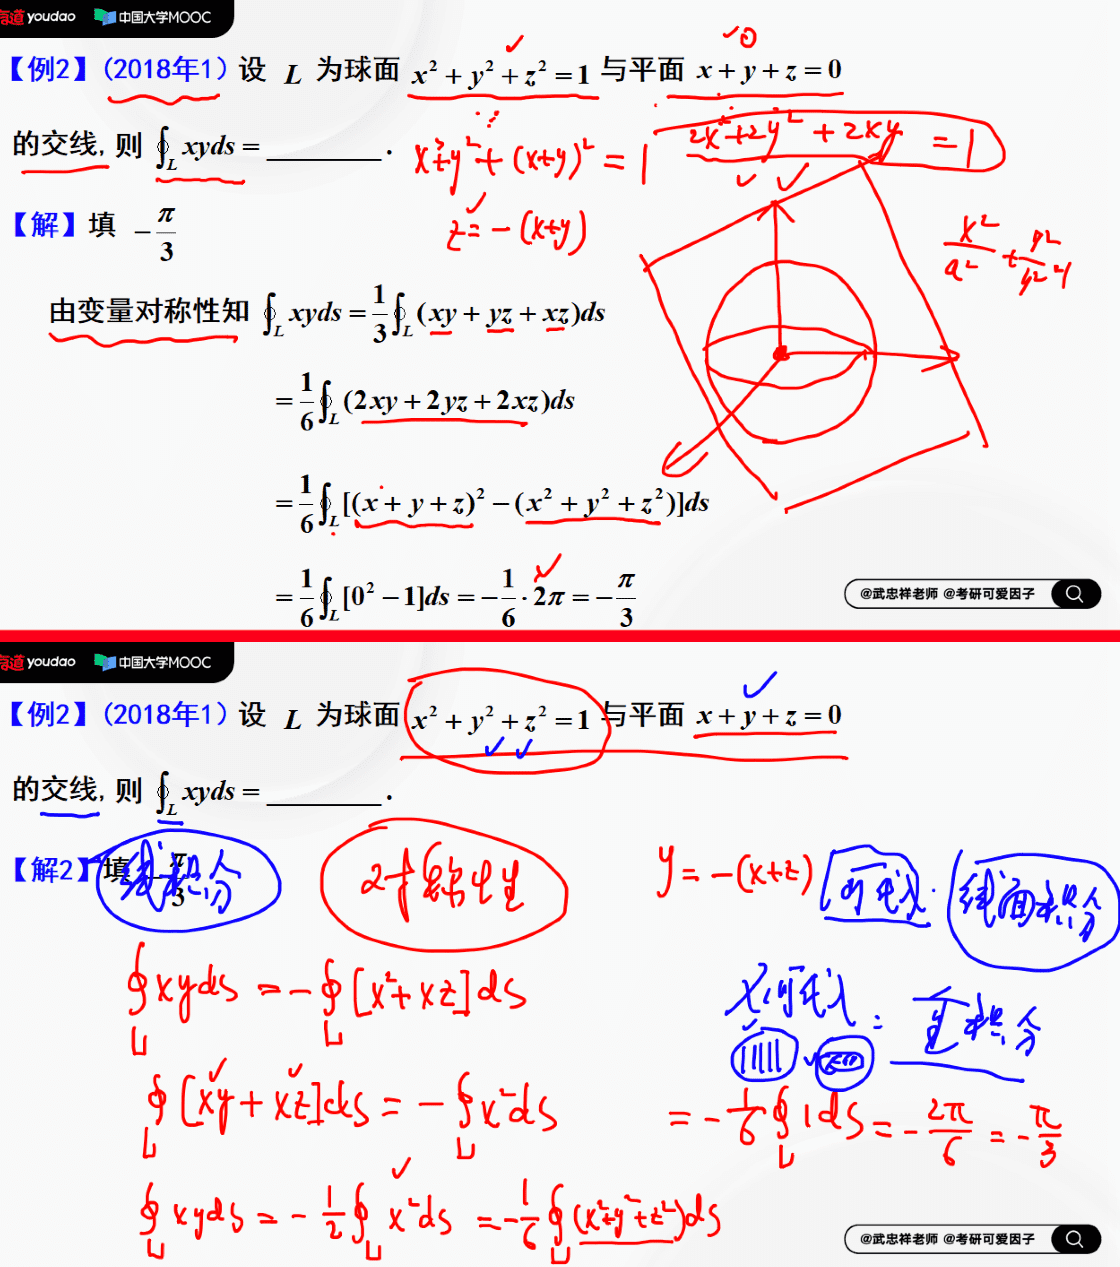 有道 youdao 中国大学MOOC
【例2】(2018年1) 设 L 为球面 x² + y² + z² = 1 与平面 x + y + z = 0
的交线, 则 ∮_L xyds = ________ .
x²+y²+(x+y)² = 1
2x²+2y²+2xy = 1
z = -(x+y)
【解】填 -π/3
x²/a² +
由变量对称性知 ∮_L xyds = 1/3 ∮_L (xy + yz + xz)ds
= 1/6 ∮_L (2xy + 2yz + 2xz)ds
= 1/6 ∮_L [(x + y + z)² - (x² + y² + z²)]ds
= 1/6 ∮_L [0² - 1]ds = -1/6 · 2π = -π/3
@武忠祥老师 @考研可爱因子
有道 youdao 中国大学MOOC
【例2】(2018年1) 设 L 为球面 x² + y² + z² = 1 与平面 x + y + z = 0
的交线, 则 ∮_L xyds = ________ .
【解2】填 -π/3
线积分
y = -(x+z) 可代入 线面积分
∮_L xyds = -∮_L [x²+xz]ds
不可代入: 重积分
∮_L [xy+xz]ds = -∮_L x²ds
= -1/6 ∮_L 1ds = -2π/6 = -π/3
∮_L xyds = -1/2 ∮_L x²ds = -1/6 ∮_L (x²+y²+z²)ds
@武忠祥老师 @考研可爱因子